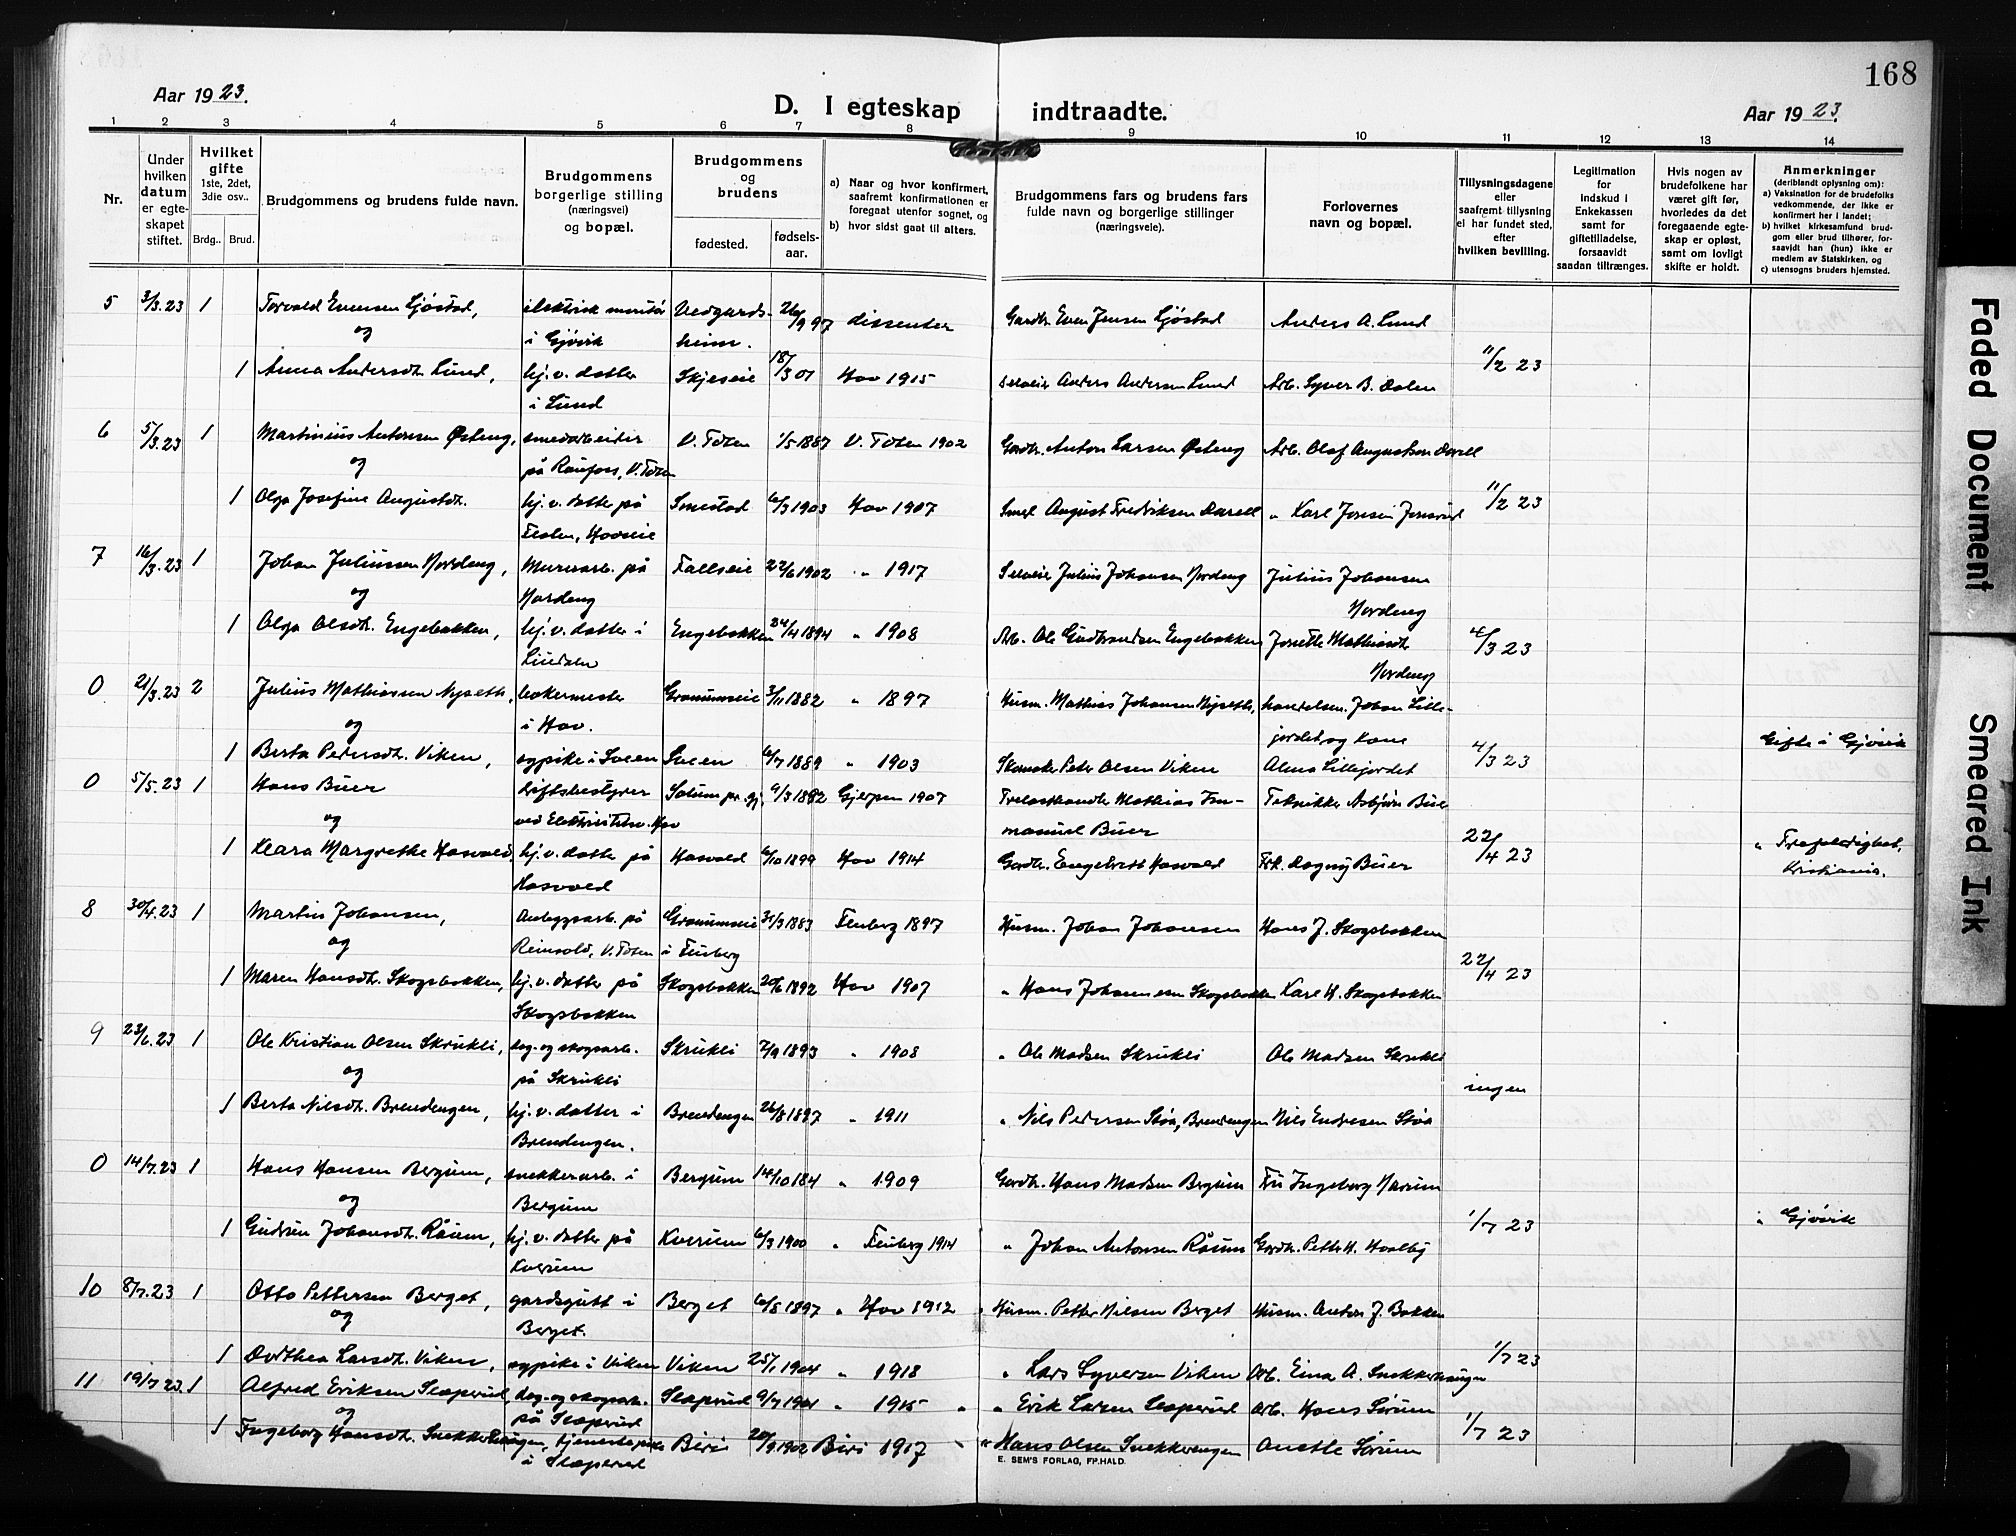 168
Aar 1923.
D. I egteskap indtraadte.
Aar 1923.
1 2 3 4 5 6 7 8 9 10 11 12 13 14
Nr.
Under hvilken datum er egteskapet stiftet.
Hvilket gifte 1ste, 2det, 3die osv..
Brdg.. Brud.
Brudgommens og brudens fulde navn.
Brudgommens borgerlige stilling (næringsvei) og bopæl.
Brudgommens og brudens
fødested.
fødsels-aar.
a) Naar og hvor konfirmert, saafremt konfirmationen er foregaat utenfor sognet, og
b) hvor sidst gaat til alters.
Brudgommens fars og brudens fars fulde navn og borgerlige stillinger (næringsveie).
Forlovernes navn og bopæl.
Tillysningsdagene eller saafremt tillysning ei har fundet sted, efter hvilken bevilling.
Legitimation for indskud i Enkekassen samt for giftetilladelse, forsaavidt saadan tiltrænges.
Hvis nogen av brudefolkene har været gift før, hvorledes da det foregaaende egteskap er opløst, samt om lovligt skifte er holdt.
Anmerkninger (deriblandt oplysning om):
a) Vaksination for de brudefolks vedkommende, der ikke er konfirmert her i landet;
b) hvilket kirkesamfund brudgom eller brud tilhører, forsaavidt han (hun) ikke er medlem av Statskirken, og
c) utensogns bruders hjemsted.
5 3/3.23 1 Torvald Evensen Sjøstad, elektrisk montør i Gjøvik 26/9 97 dissenter Gardbr. Even Jensen Sjøstad Anders A. Lund
og
1 Anna Andersdtr. Lund, hj.v. datter i Lund Skjeseie 18/3 01 Hov 1915 selveier Anders Andersen Lund Arb. Syver B. Dalen 11/2 23
6 5/3.23 1 Martinius Antonsen Østeng, smedarbeider på Raufoss, V. Toten V. Toten 1/5 1887 V. Toten 1902 Gardbr. Anton Larsen Østeng Arb. Olaf Augustsen
og
1 Olga Josefine Augustdtr. hj.v. datter på Smestad 6/3 1903 Hov 1907 Smed August Fredriksen " Karl Jonsen Jonsrud 11/2 23
7 16/3.23 1 Johan Juliussen Nordeng, Murerarb. på Nordeng Fallseie 22/6 1902 " 1917 Selveier Julius Johansen Nordeng Julius Johansen Nordeng
og
1 Olga Olsdtr. Engebakken, hj.v. datter i Lindalen Engebakken 24/4 1894 " 1908 Arb. Ole Gudbrandsen Engebakken Jonette Mathisdtr. Nordeng 4/3 23
0 21/3.23 2 Julius Mathiassen Nyseth, bakermester i Hov. Granumseie 3/11 1882 " 1897 Husm. Mathias Johansen Nyseth, handelsm. Johan Lille-
og
jordet og Kone
1 Berta Pedersdtr. Viken, sypike i Sveen Sveen 6/7 1889 " 1903 Peter Olsen Viken Alma Lillejordet 4/3 23 Gifte i Gjøvik
0 5/5.23 1 Hans Buer driftsbestyrer ved Elektricitetsv. Hov Solum pr. 9/3 1882 Gjerpen 1907 Trelasthandler Mathias Emanuel Buer Tekniker Asbjørn Buer
og
1 Klara Margrethe Hasvold, hj.v. datter på Hasvold Hasvold 6/10 1899 Hov 1914 Gardbr. Engebrett Hasvold Frk. Dagny Buer 22/4 23 " Trefoldighet, Kristiania.
8 30/4.23 1 Martin Johansen, Anleggsarb. på Reinsvold, V. Toten Granumseie i Fluberg 31/3 1883 Fluberg 1897 Husm. Johan Johansen Hans J. Skogsbakken
og
1 Maren Hansdtr. Skogsbakken, hj.v. datter på Skogsbakken Skogsbakken 20/6 1892 Hov 1907 " Hans Johannesen Skogsbakken Karl H. Skogsbakken 22/4 23
9 23/6.23 1 Ole Kristian Olsen Skrukli, dag- og skogsarb. på Skrukli Skrukli 7/9 1893 " 1908 " Ole Madsen Skrukli Ole Madsen Skrukli
og
ingen
1 Berta Nilsdtr. Brendengen, hj.v. datter i Brendengen. Brendengen 26/8 1897 " 1911 " Nils Pedersen Støa, Brendengen Nils Endresen Støa
0 14/7.23 1 Hans Hansen Bergum, snekkerarb. i Bergum Bergum 14/10 184 " 1909 Gardbr. Hans Madsen Bergum Fru Ingeborg Narum
og
1 Gudrun Johansdtr. Råum, hj.v. datter på Kverum Kverum 6/3 1900 " Fluberg 1914 " Johan Antonsen Råum Gardbr. Petter H. Haalby 1/7 23 " Gjøvik
10 8/7.23 1 Otto Pettersen Berget, gardsgutt i Berget. Berget 6/8 1897 " Hov 1912 " Husm. Petter Nilsen Berget Husm. Anton J. Bakken
og
1 Dorthea Larsdtr. Viken, sypike i Viken Viken 25/1 1904 " 1918 " Lars Syversen Viken Arb. Eina A. Snekkerhaugen 1/7 23
11 19/7.23. 1 Alfred Eriksen Slæperud, dag- og skogsarb. på Slæperud Slæperud 9/7 1901 " 1915 " " Erik Larsen Slæperud Arb. Hans Sørum
og
1 Ingeborg Hansdtr. Snekkerhaugen, tjenestepike i Slæperud Biri 20/9 1902 Biri 1917 " " Hans Olsen Snekkerengen Anette Sørum 1/7 23
E. SEM'S FORLAG, FR.HALD.
Faded Document
Smeared Ink